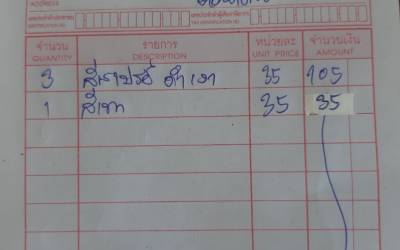 ADDRESS
จำนวน รายการ หน่วยละ จำนวนเงิน
QUANTITY DESCRIPTION UNIT PRICE AMOUNT
3 สีสเปรย์ ดำเงา 35 105
1 สีเทา 35 35